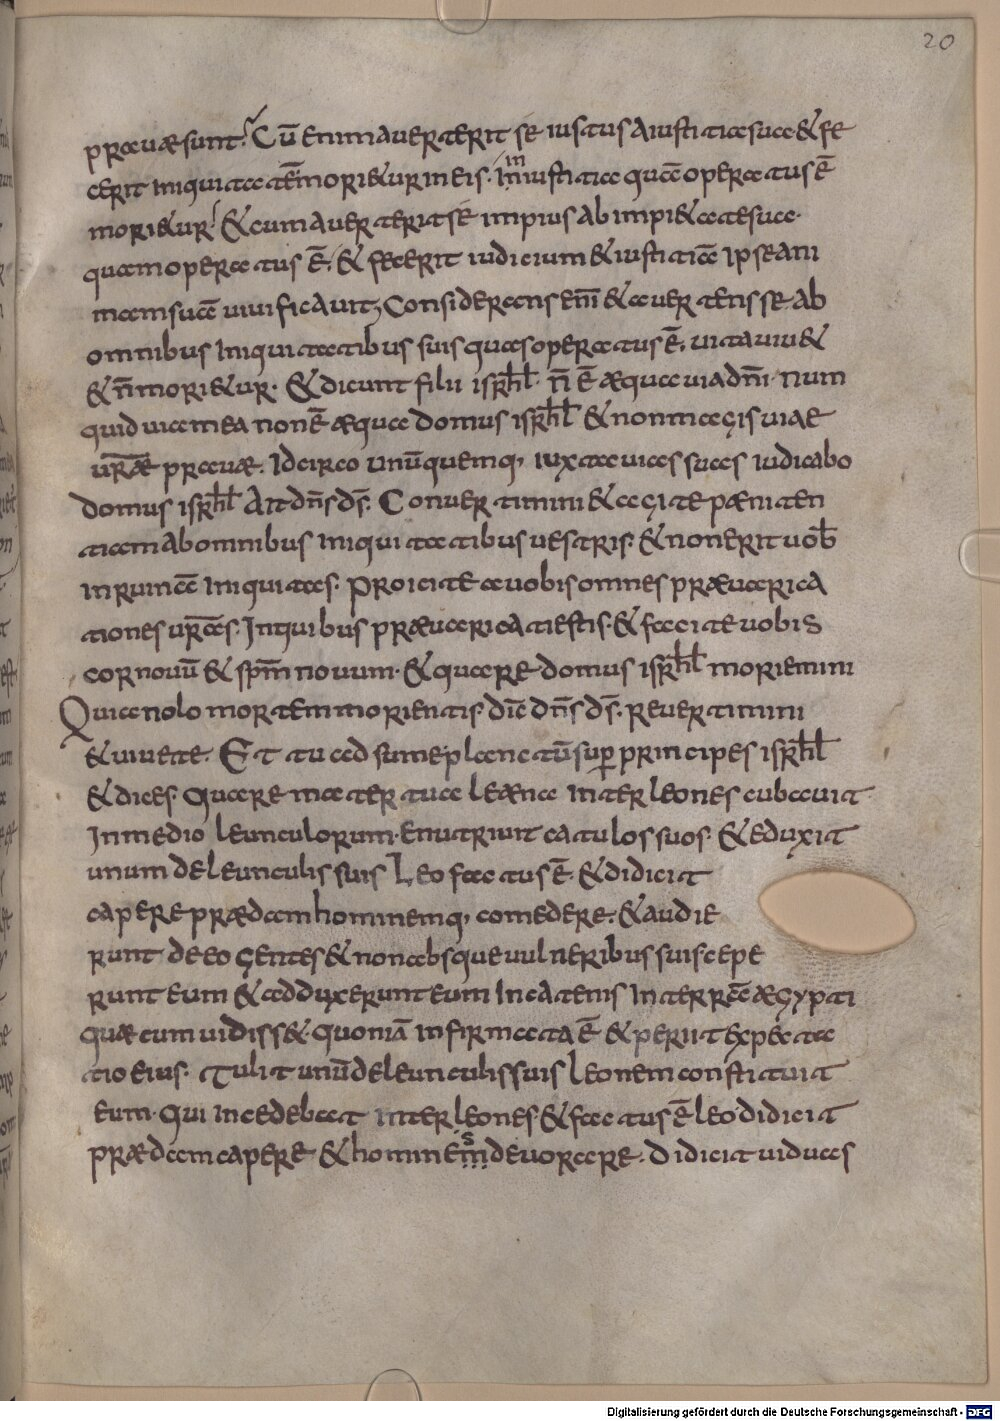 20
prauæ sunt. Cū enim auerterit se iustus a iustitia sua & fe
cerit iniquitatē morietur in eis. in iniustitia quā operatus ē
mori&ur. & cum auerterit se impius ab impi&ate sua.
quam operatus ē. & fecerit iudicium & iustitiā ipse ani
mam suā uiuificauit; Considerans eni & auertens se ab
omnibus iniquitatibus suis quas operatus ē. uita uiu&
& n̄ mori&ur. & dicunt filii isrhl. n̄ ē æqua uia dni. num
quid uiae mea non ē æquae domus isrhl & non magis uiae
uræ prauæ. Idcirco unūquemq, iuxta uias suas iudicabo
domus isrhl Ait dns ds. Conuertimini & agite pæniten
tiam ab omnibus iniquitatibus uestris. & non erit uob
in ruinā iniquitas. proicite a uobis omnes præuarica
tiones uras. In quibus præuaricati estis. & facite uobis
cor nouū & spm nouum. & quare domus isrhl moriemini
Quia nolo mortem morientis. dic dns ds. reuertimini
& uiuete. Et tu adsume planctū sup principes isrhl
& dices. Quare mater tua leæna inter leones cubauit
In medio leunculorum. enutriuit catulos suos. & eduxit
unum de leunculis suis Leo factus ē. & didicit
capere prædam hominemq, comedere. & audie
runt de eo gentes & non absque uulneribus suis cepe
runt eum & adduxerunt eum in catenis in terrā ægypti
quæ cum uidiss& quoniā infirmata ē & periit expecta
tio eius. Tulit unū de leunculis suis leonem constituit
eum. Qui incedebat inter leones. & factus ē leo. didicit
prædam capere & hominem s deuorare. Didicit uiduas
Digitalisierung gefördert durch die Deutsche Forschungsgemeinschaft - DFG